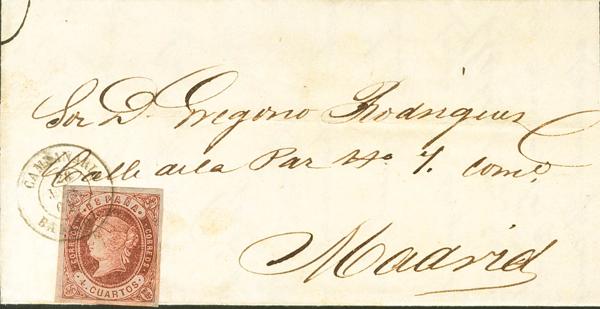 Sor D. Gregorio Rodriguez
Calle de la Paz No 7. como.
Madrid
ESPAÑA
CORREOS
CORREOS
4 CUARTOS